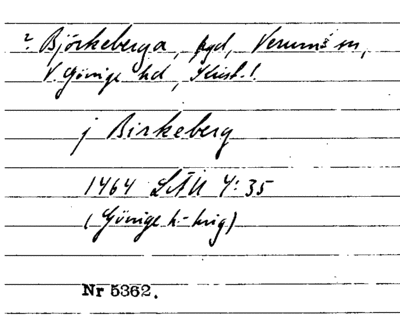 ? Björkeberga, pgd, Verums sn,
V. Göinge hd, Krist. l.
j Birkeberg
1464 LÄU 4:35
(Göinge h-krig)
Nr 5362.